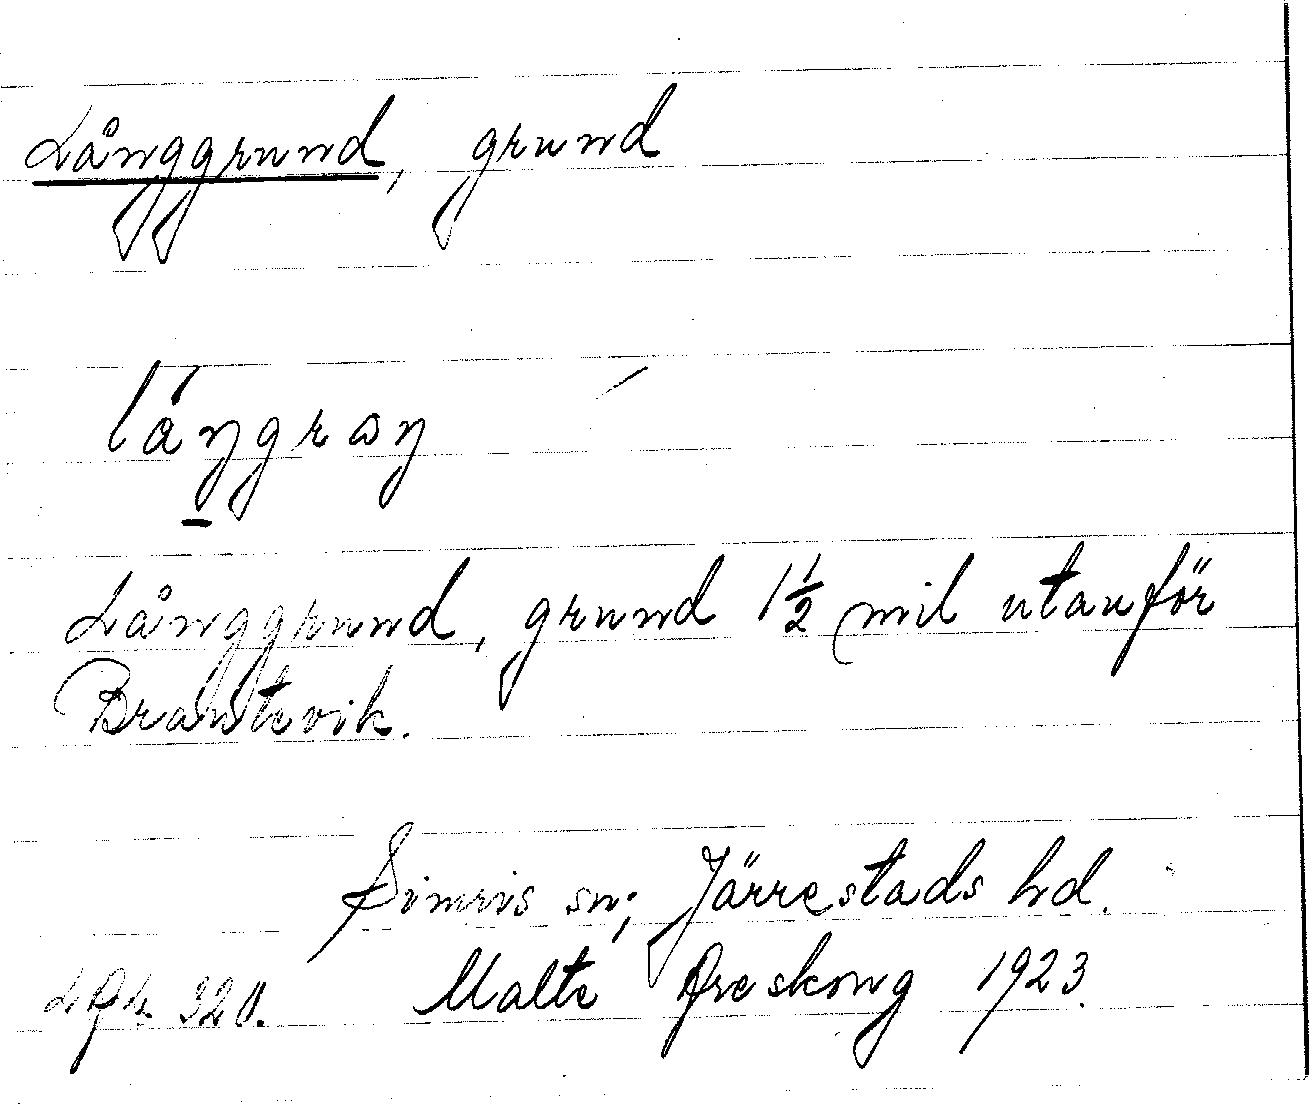 Långgrund, grund
låŋgraŋ
Långgrund, grund 1½ mil utanför
Brantevik.
Simris sn; Järrestads hd.
Malte Areskong 1923.